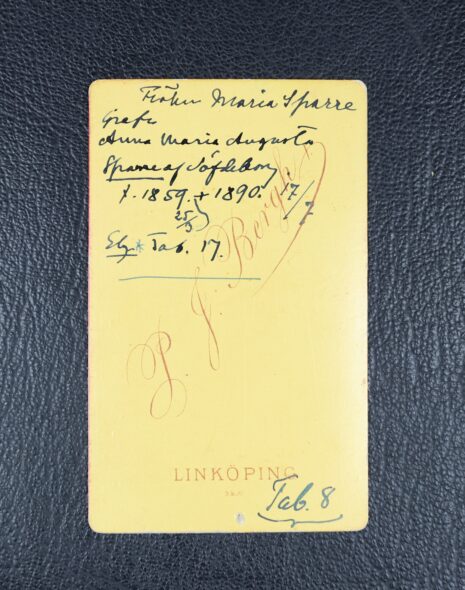 Fröken Maria Sparre
Grefv.
Anna Maria Augusta
Sparre af Söfdeborg
f. 1859. + 1890. 17/7
25/3
Elg. * Tab. 17.
P. J. Bergh
LINKÖPING
Tab. 8